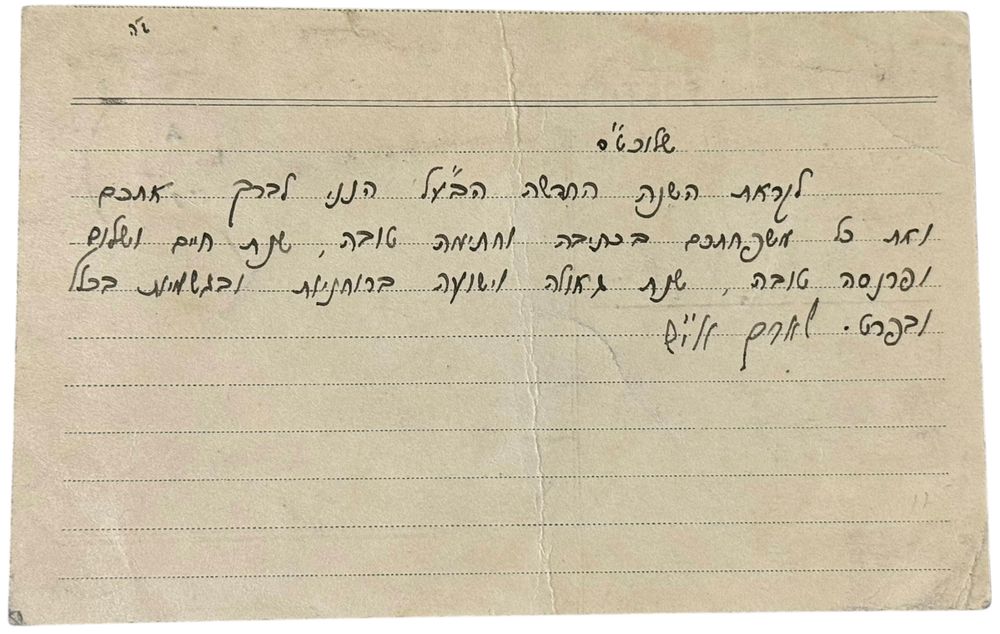 ב"ה
שלוכט"ס
לקראת השנה החדשה הבע"ל הנני לברך אתכם
ואת כל משפחתכם בכתיבה וחתימה טובה, שנת חיים ושלום
ופרנסה טובה, שנת גאולה וישועה ברוחניות ובגשמיות בכלל
ובפרט.